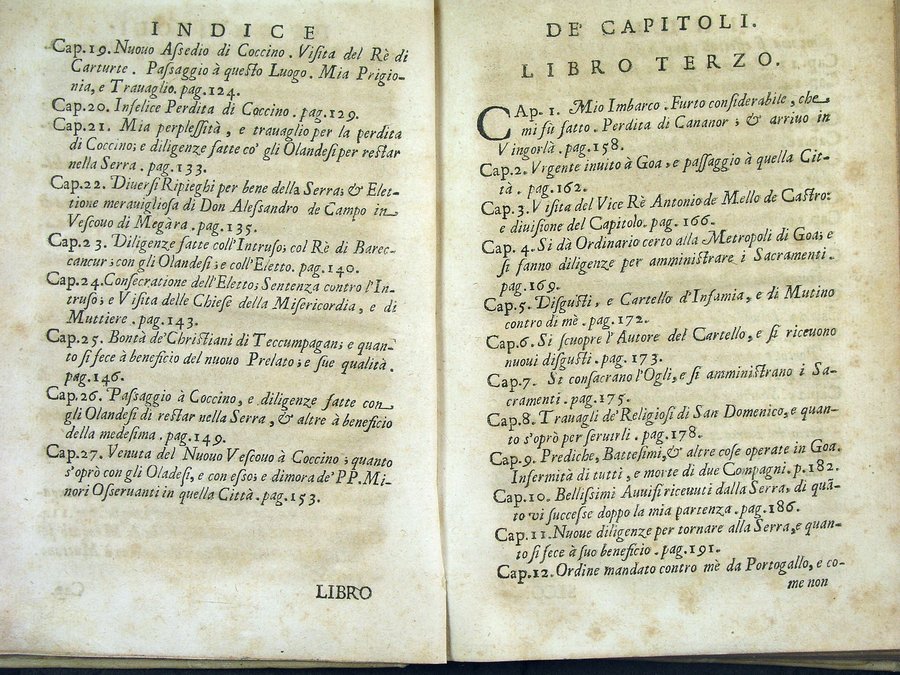 INDICE
Cap.19. Nuouo Aſsedio di Coccino. Viſita del Rè di
Carturte. Paſsaggio à queſto Luogo. Mia Prigio-
nia, e Trauaglio. pag.124.
Cap.20. Infelice Perdita di Coccino. pag.129.
Cap.21. Mia perpleſſità, e trauaglio per la perdita
di Coccino; e diligenze fatte co' gli Olandeſi per reſtar
nella Serra. pag.133.
Cap.22. Diuerſi Ripieghi per bene della Serra; & Elet-
tione merauiglioſa di Don Aleſsandro de Campo in
Veſcouo di Megàra. pag.135.
Cap.23. Diligenze fatte coll'Intruſo; col Rè di Barec-
cancur; con gli Olandeſi; e coll'Eletto. pag.140.
Cap.24. Conſecratione dell'Eletto; Sentenza contro l'In-
truſo; e Viſita delle Chieſe della Miſericordia, e di
Muttiere. pag.143.
Cap.25. Bontà de'Chriſtiani di Teccumpagan; e quan-
to ſi fece à beneficio del nuouo Prelato; e ſue qualità.
pag.146.
Cap.26. Paſsaggio à Coccino, e diligenze fatte con
gli Olandeſi di reſtar nella Serra, & altre à beneficio
della medeſima. pag.149.
Cap.27. Venuta del Nuouo Veſcouo à Coccino; quanto
s'oprò con gli Oladeſi, e con eſso; e dimora de'PP. Mi-
nori Oſseruanti in quella Città. pag.153.
LIBRO
DE' CAPITOLI.
LIBRO TERZO.
CAp. 1. Mio Imbarco. Furto conſiderabile, che
mi fù fatto. Perdita di Cananor; & arriuo in
Vingorlà. pag.158.
Cap.2. Vrgente inuito à Goa, e paſſaggio à quella Cit-
tà. pag.162.
Cap.3. Viſita del Vice Rè Antonio de Mello de Caſtro:
e diuiſione del Capitolo. pag.166.
Cap. 4. Si dà Ordinario certo alla Metropoli di Goa; e
ſi fanno diligenze per amminiſtrare i Sacramenti.
pag.169.
Cap.5. Diſguſti, e Cartello d'Infamia, e di Mutino
contro di mè. pag.172.
Cap.6. Si ſcuopre l'Autore del Cartello, e ſi riceuono
nuoui diſguſti. pag.173.
Cap.7. Si conſacrano l'Ogli, e ſi amminiſtrano i Sa-
cramenti. pag.175.
Cap.8. Trauagli de'Religioſi di San Domenico, e quan-
to s'oprò per ſeruirli. pag.178.
Cap.9. Prediche, Batteſimi, & altre coſe operate in Goa.
Infermità di tutti, e morte di due Compagni. p.182.
Cap.10. Belliſſimi Auuiſi riceuuti dalla Serra, di quã-
to vi ſucceſse doppo la mia partenza. pag.186.
Cap.11. Nuoue diligenze per tornare alla Serra, e quan-
to ſi fece à ſuo beneficio. pag.191.
Cap.12. Ordine mandato contro mè da Portogallo, e co-
me non